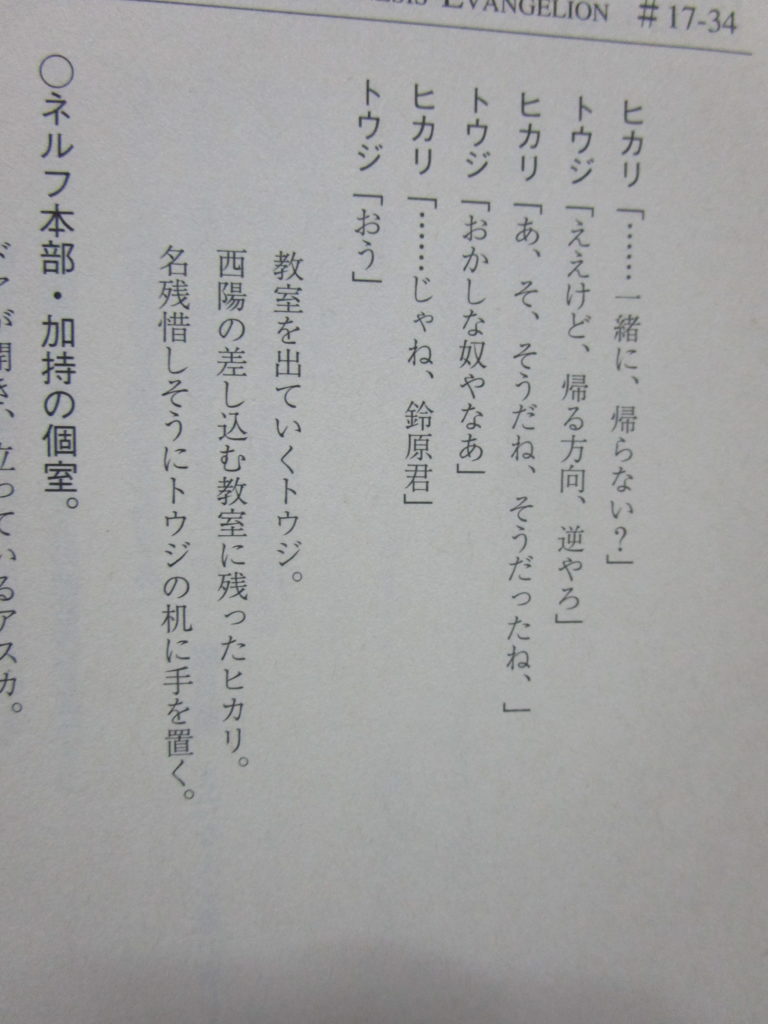 EVANGELION #17-34
ヒカリ「……一緒に、帰らない？」
トウジ「ええけど、帰る方向、逆やろ」
ヒカリ「あ、そ、そうだね、そうだったね、」
トウジ「おかしな奴やなあ」
ヒカリ「……じゃね、鈴原君」
トウジ「おう」
教室を出ていくトウジ。
西陽の差し込む教室に残ったヒカリ。
名残惜しそうにトウジの机に手を置く。
○ネルフ本部・加持の個室。
ドアが開き、立っているアスカ。